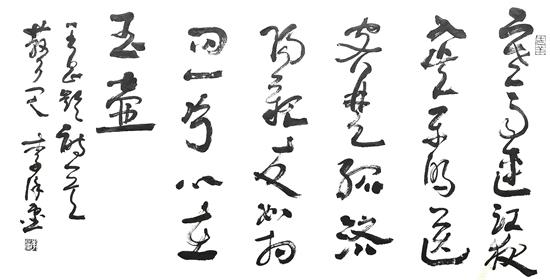 寒雨連江夜
入吳平明送
客楚山孤洛
陽親友如相
問一片心在
玉壺
王昌齡詩一首